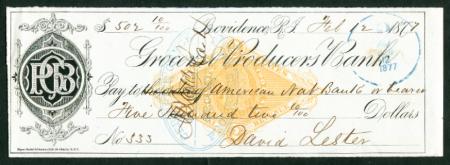 $ 502 10/100 Providence, R.I. Feb 12 1877
Grocers & Producers Bank
Pay to American Nat Bank or bearer
Five Hundred two 10/100 Dollars
No 333
David Lester
1877